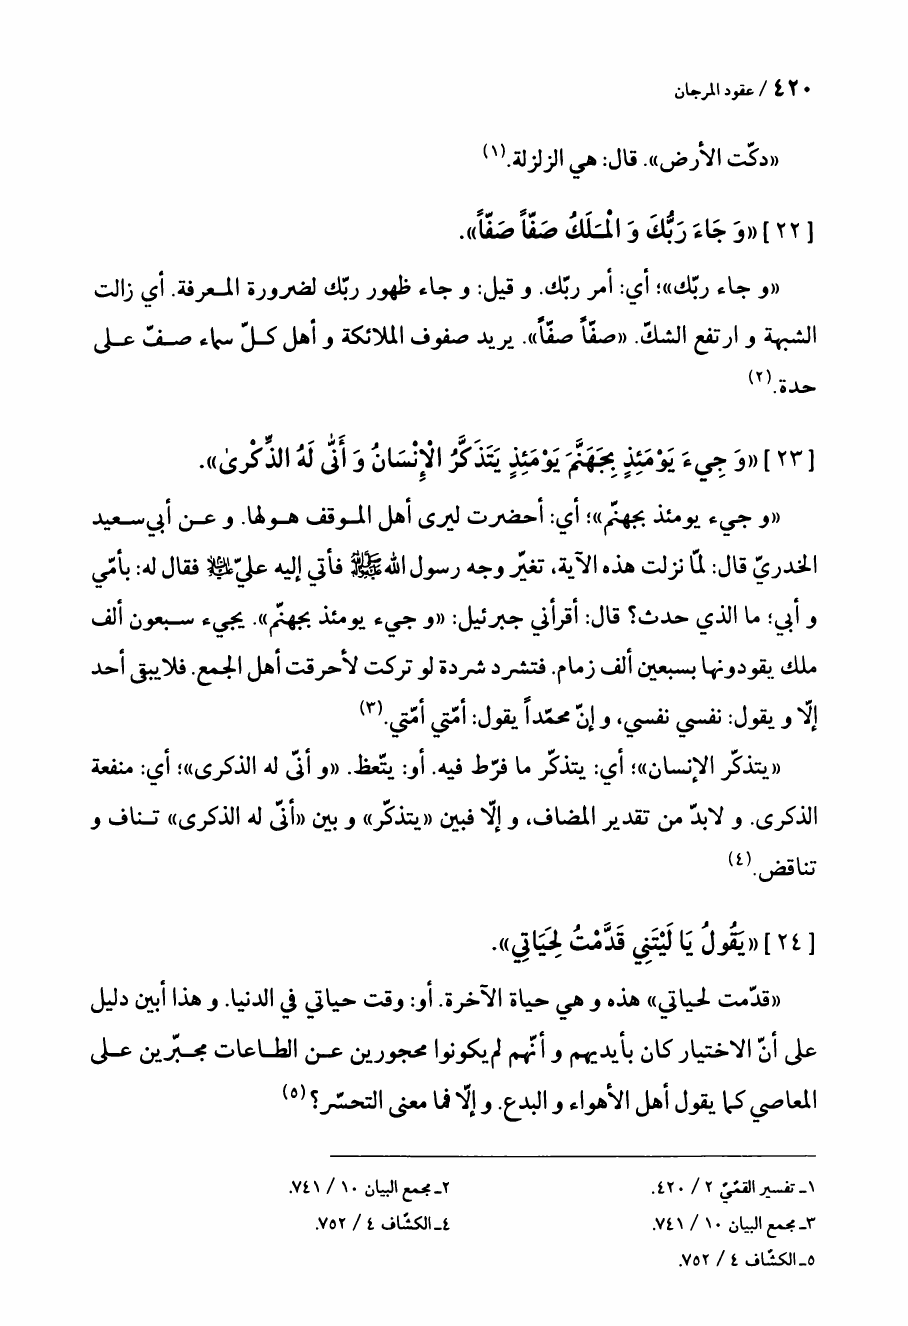 ٤٢٠ / عقود المرجان
«دكّت الأرض». قال: هي الزلزلة.(١)
[٢٢] «وَ جَاءَ رَبُّكَ وَ الْمَلَكُ صَفّاً صَفّاً».
«و جاء ربّك»؛ أي: أمر ربّك. و قيل: و جاء ظهور ربّك لضرورة المعرفة. أي زالت
الشبهة و ارتفع الشكّ. «صفّاً صفّاً». يريد صفوف الملائكة و أهل كلّ سماء صفّ على
حدة.(٢)
[٢٣] «وَ جِيءَ يَوْمَئِذٍ بِجَهَنَّمَ يَوْمَئِذٍ يَتَذَكَّرُ الْإِنْسَانُ وَ أَنَّى لَهُ الذِّكْرىٰ».
«و جيء يومئذ بجهنّم»؛ أي: أحضرت ليرى أهل الموقف هولها. و عن أبي‌سعيد
الخدريّ قال: لمّا نزلت هذه الآية، تغيّر وجه رسول الله ﷺ فأتي إليه عليّ عليه السلام فقال له: بأمّي
و أبي؛ ما الذي حدث؟ قال: أقرأني جبرئيل: «و جيء يومئذ بجهنّم». يجيء سبعون ألف
ملك يقودونها بسبعين ألف زمام. فتشرد شردة لو تركت لأحرقت أهل الجمع. فلا يبقى أحد
إلّا و يقول: نفسي نفسي، و إنّ محمّداً يقول: أمّتي أمّتي.(٣)
«يتذكّر الإنسان»؛ أي: يتذكّر ما فرّط فيه. أو: يتّعظ. «و أنّى له الذكرى»؛ أي: منفعة
الذكرى. و لابدّ من تقدير المضاف، و إلّا فبين «يتذكّر» و بين «أنّى له الذكرى» تناف و
تناقض.(٤)
[٢٤] «يَقُولُ يَا لَيْتَنِي قَدَّمْتُ لِحَيَاتِي».
«قدّمت لحياتي» هذه و هي حياة الآخرة. أو: وقت حياتي في الدنيا. و هذا أبين دليل
على أنّ الاختيار كان بأيديهم و أنّهم لم‌يكونوا محجورين عن الطاعات مجبّرين على
المعاصي كما يقول أهل الأهواء و البدع. و إلّا فما معنى التحسّر؟(٥)
١ـ تفسير القمّيّ ٢ / ٤٢٠.
٢ـ مجمع البيان ١٠ / ٧٤١.
٣ـ مجمع البيان ١٠ / ٧٤١.
٤ـ الكشّاف ٤ / ٧٥٢.
٥ـ الكشّاف ٤ / ٧٥٢.